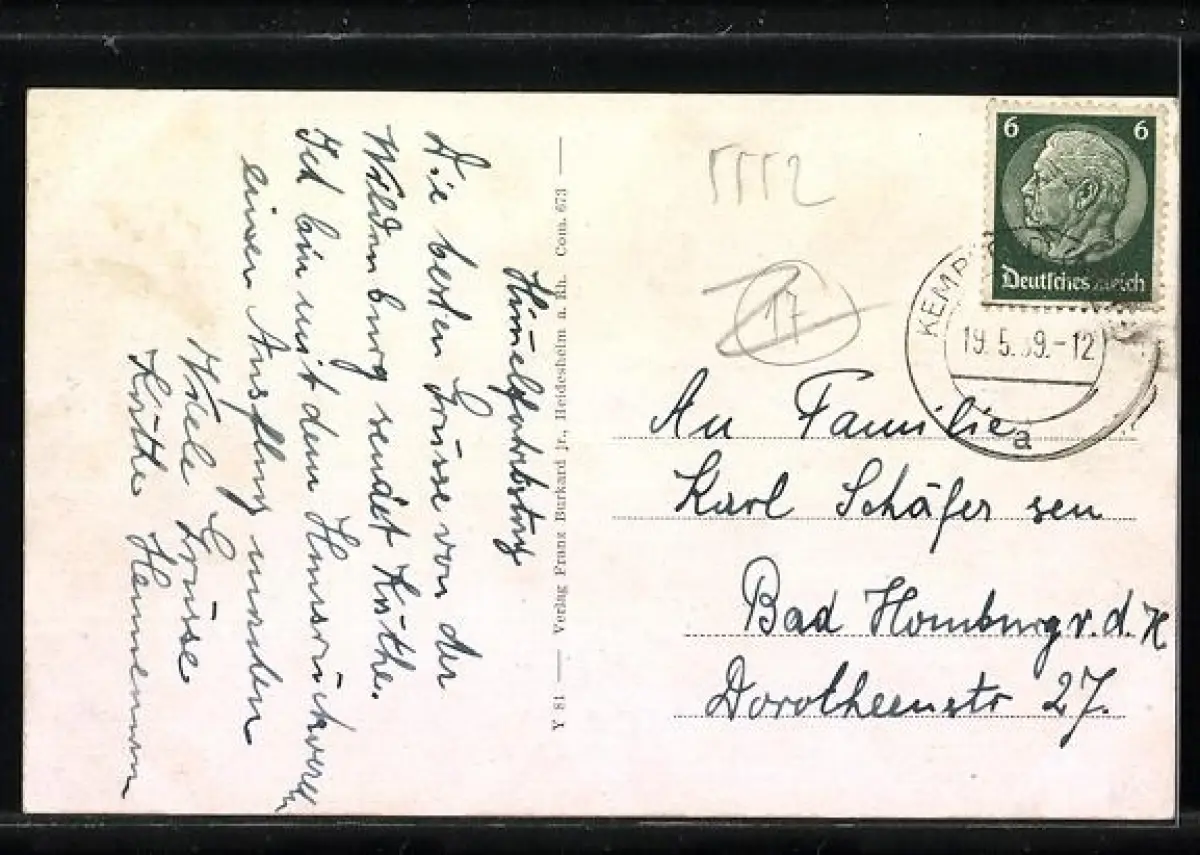 Himelfahrtstag
Die besten Grüsse von der
Wildenburg sendet Käthe.
Ich bin mit dem Hunsrückverein
einen Ausflug machen
Viele Grüsse
Käthe Hennemann
Y 81 — Verlag Franz Burkard jr., Heidesheim a. Rh. Com. 673 —
17
6 6
Deutsches Reich
19.5.39.-12
a
An Familie
Karl Schäfer sen
Bad Homburg v. d. H
Dorotheenstr 27.